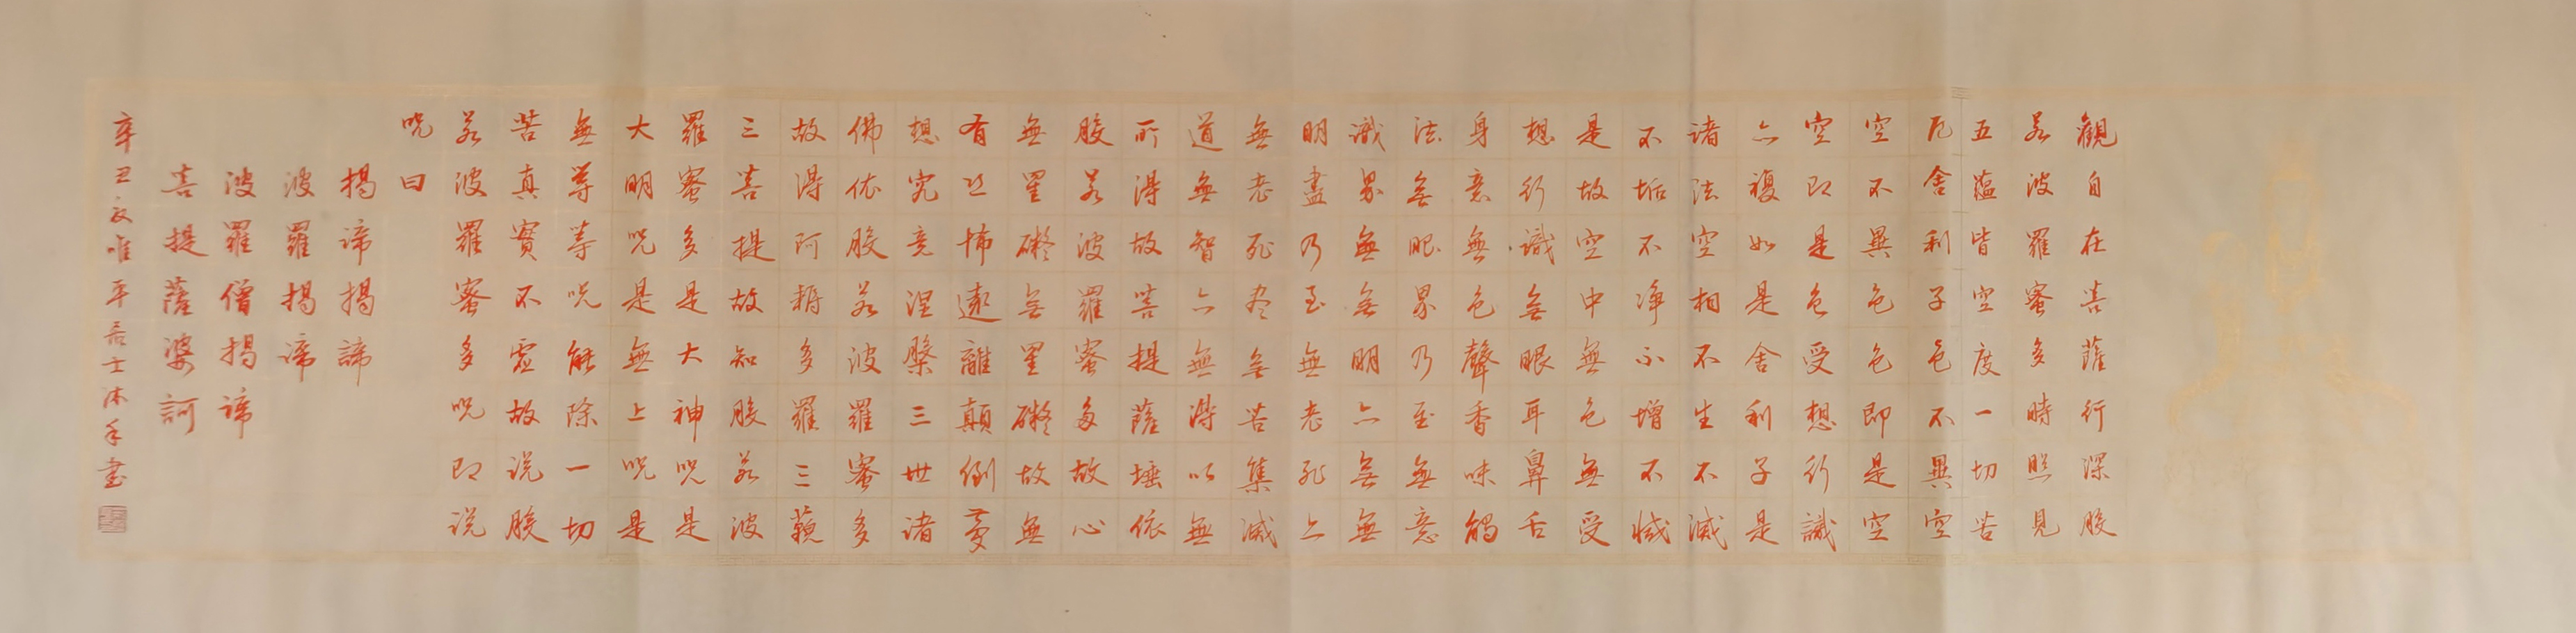 觀自在菩薩行深般
若波羅蜜多時照見
五蘊皆空度一切苦
厄舍利子色不異空
空不異色色即是空
空即是色受想行識
亦複如是舍利子是
諸法空相不生不滅
不垢不净不增不減
是故空中無色無受
想行識無眼耳鼻舌
身意無色聲香味觸
法無眼界乃至無意
識界無無明亦無無
明盡乃至無老死亦
無老死尽無苦集滅
道無智亦無得以無
所得故菩提薩埵依
般若波羅蜜多故心
無罣礙無罣礙故無
有恐怖遠離顛倒夢
想究竟涅槃三世諸
佛依般若波羅蜜多
故得阿耨多羅三藐
三菩提故知般若波
羅蜜多是大神咒是
大明咒是無上咒是
無等等咒能除一切
苦真實不虛故説般
若波羅蜜多咒即説
咒曰
揭諦揭諦
波羅揭諦
波羅僧揭諦
菩提薩婆訶
辛丑夏唯平居士沐手書